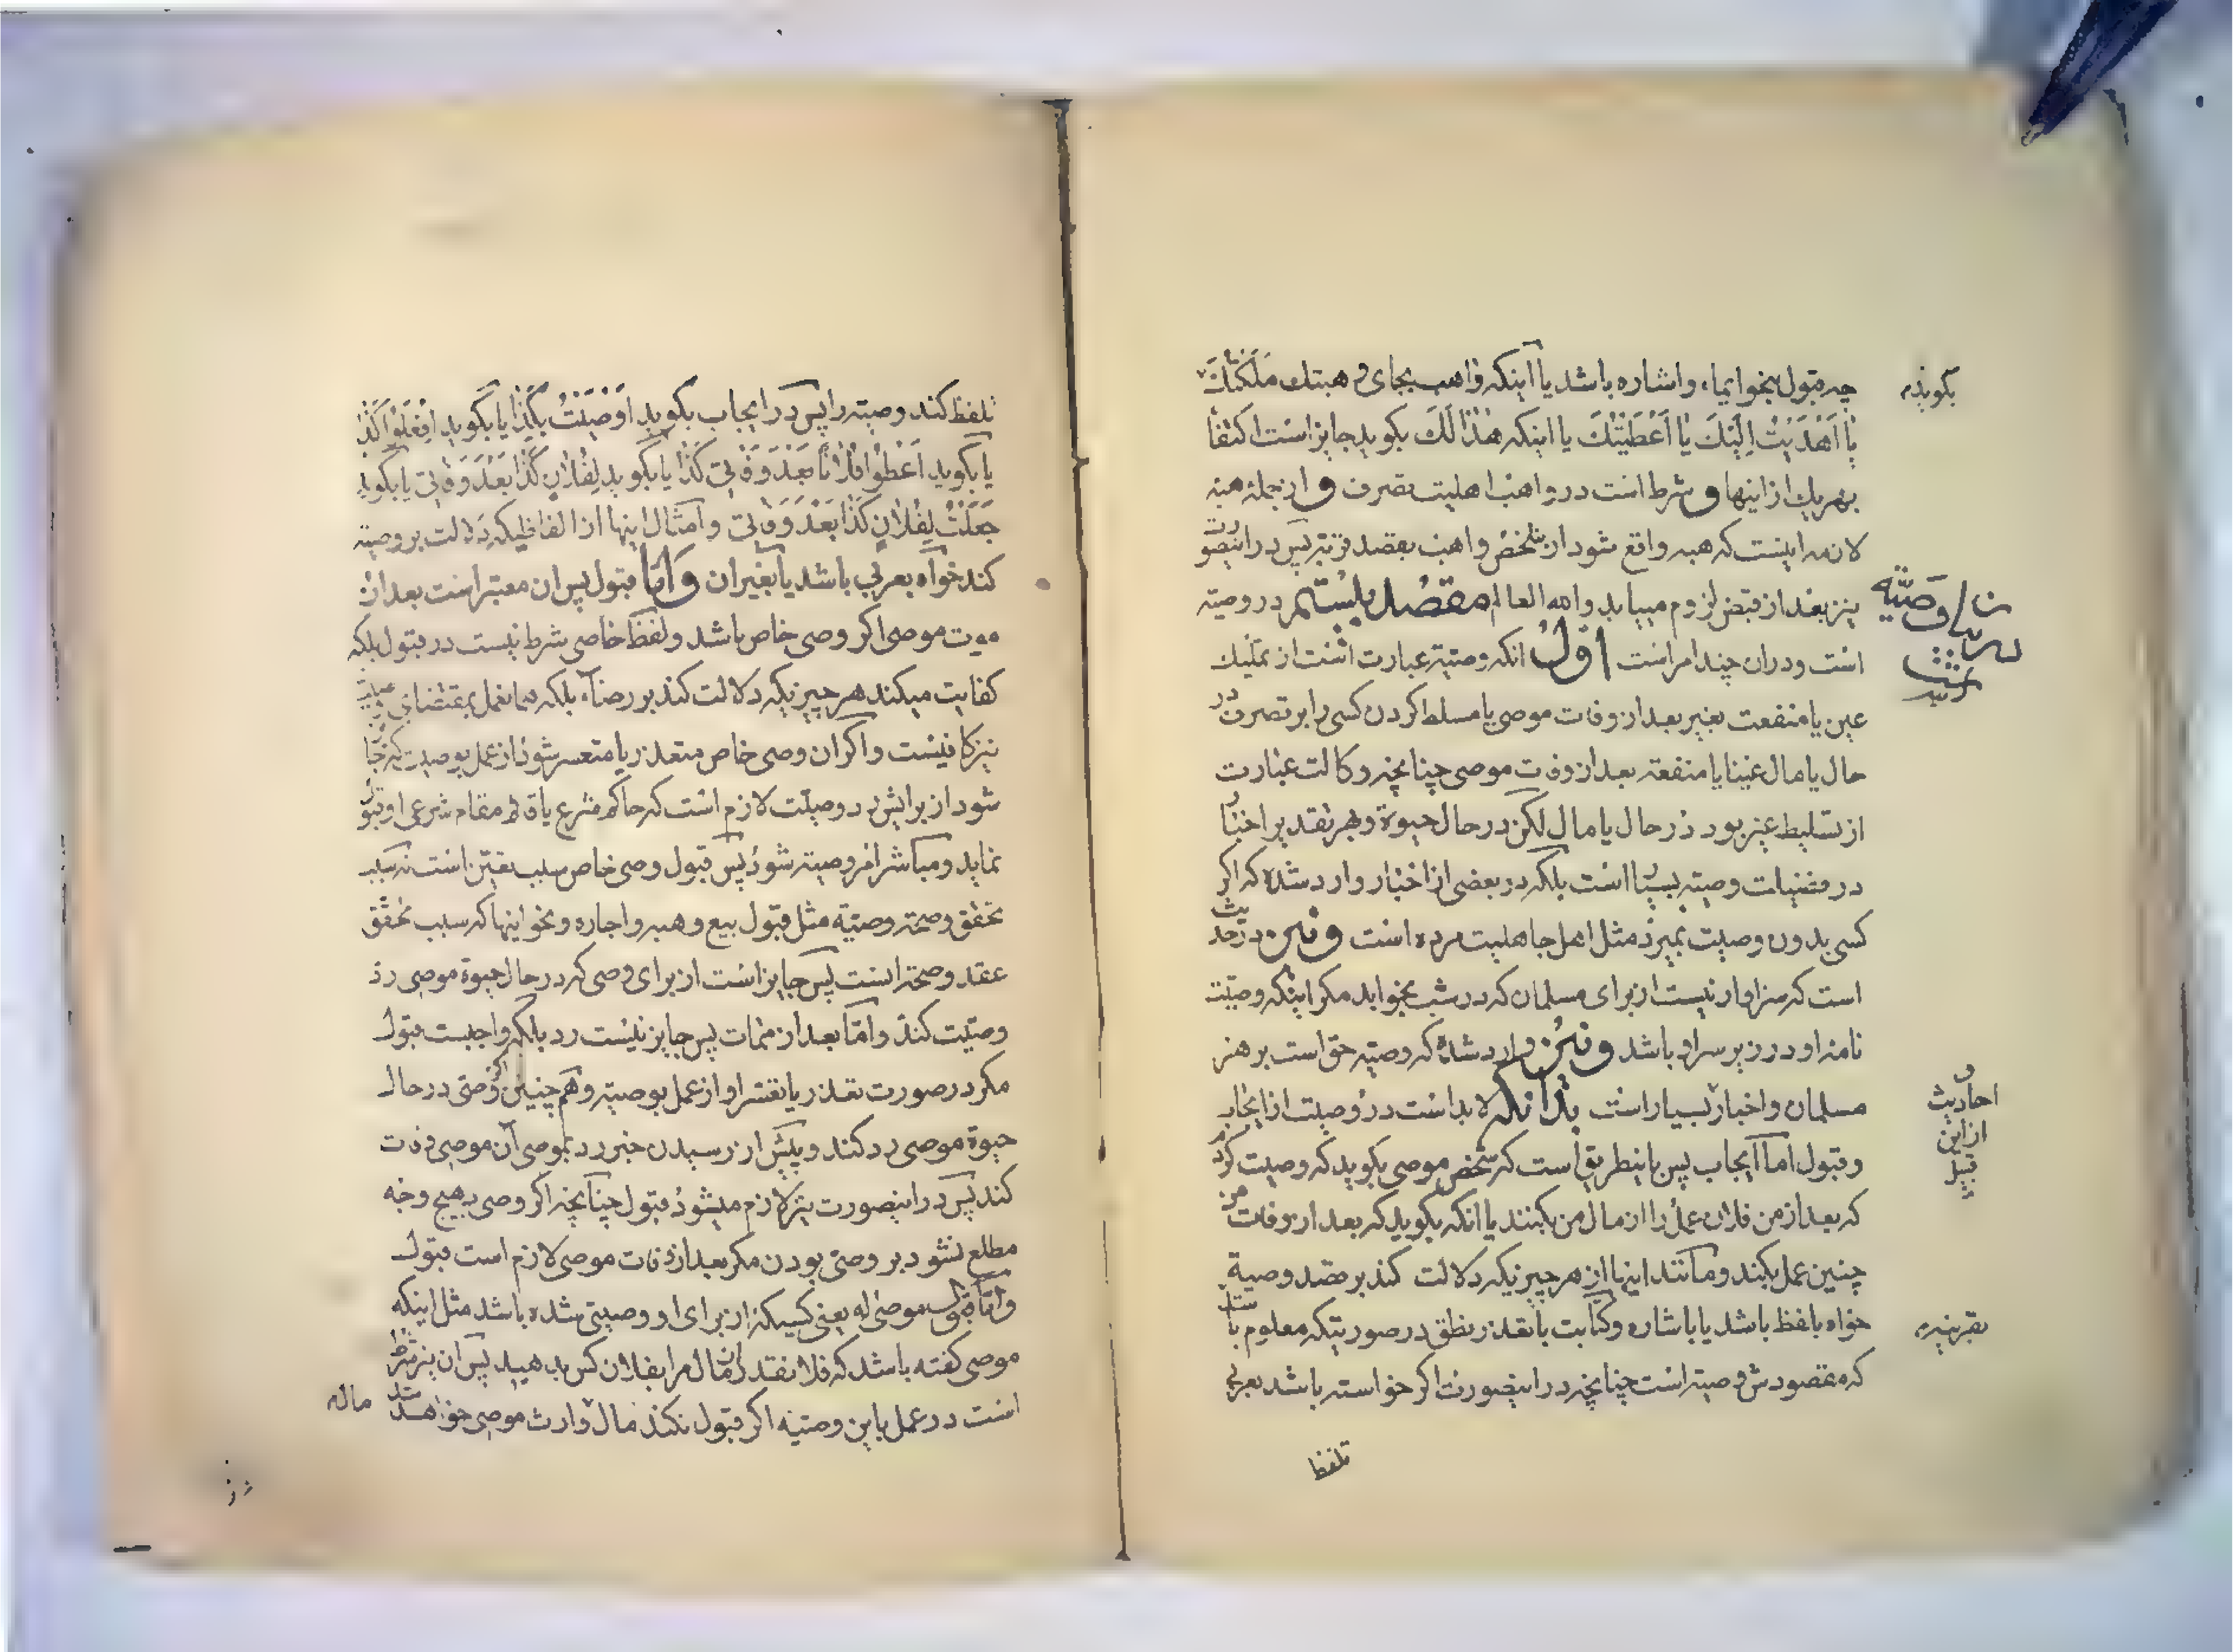 چه قبول بنحو ایماء و اشاره باشد یا اینکه واهب بجای وهبتك مَلَّكتُكَ
یا اَهْدَیْتُ اِلَیْكَ یا اَعْطَیْتُكَ یا اینکه هٰذا لَكَ بکوید جایز است اکتفا
بهریك از اینها و شرط است در واهب اهلیت تصرف و از جمله هبه
لازمه اینست که هبه واقع شود از شخص واهب بقصد قربة پس در اینصورت
نیز بعد از قبض لزوم مییابد والله العالم مقصد بیستم در وصیته
است و در ان چند امر است اوّلُ انکه وصیته عبارت است از تملیك
عین یا منفعت بغیر بعد از وفات موصی یا مسلط کردن کسی را بر تصرف در
حال یا مال عینا یا منفعة بعد از وفات موصی چنانچه وکالت عبارت
از تسلیط غیر بود در حال یا مال لکن در حال حیوة و بهر تقدیر اخبار
در بسیار است بلکه در بعضی از اخبار وارد شده که اکر
کسی بدون وصیت بمیرد مثل اهل جاهلیت مرده است و نیز در حدیث
است که سزاوار نیست از برای مسلمان که در شب بخوابد مکر اینکه وصیّت
نامه او در زیر سر او باشد و نیز وارد شده که وصیته حق است بر هر
مسلمان و اخبار بسیار است بدانکه لابد است در وصیت از ایجاب
و قبول اما ایجاب پس باینطریق است که شخص موصی بکوید که وصیت کردم
که بعد از من فلان عمل را از مال من بکنند یا انکه بکوید که بعد از وفات من
چنین عمل بکند و مانند اینها از هر چیزیکه دلالت کند بر قصد وصیة
خواه بلفظ باشد یا باشاره و کتابت با تعذر نطق در صورتیکه معلوم باشد
که مقصودش وصیته است چنانچه در اینصورت اکر خواسته باشد بعربی
تلفظ
بکویند
وصیّة
و احادیث
از این
قبیل
بقرینه
تلفظ کند وصیته را پس در ایجاب بکوید اَوْصَیْتُ بِکَذا یا بکوید اِفْعَلُوا کَذا
یا بکوید اَعْطُوا فُلاناً بَعْدَ وَفاتی کَذا یا بکوید لِفُلانٍ کَذا بَعْدَ وَفاتی یا بکوید
جَعَلْتُ لِفُلانٍ کَذا بَعْدَ وَفاتی و امثال اینها از الفاظیکه دلالت بر وصیته
کند خواه بعربی باشد یا بغیر ان وَ اَمّا قبول پس ان معتبر است بعد از
موت موصی اکر وصی خاص باشد و لفظ خاصی شرط نیست در قبول بلکه
کفایت میکند هر چیزیکه دلالت کند بر رضاء بلکه همان عمل بمقتضای
نیز کافیست و اکر ان وصی خاص متعذر یا متعسر شود از عمل بوصیت که
شود از برایش رد وصیّت لازم است که حاکم شرع یا قائم مقام شرعی او قبول
نماید و مباشر امر وصیته شود پس قبول وصی خاص سبب تعیّن است نه سبب
تحقق و صحة وصیّة مثل قبول بیع و هبه و اجاره و نحو اینها که سبب تحقّق
عقد و صحة است پس جایز است از برای وصی که در حال حیوة موصی رد
وصیّت کند و امّا بعد از ممات پس جایز نیست رد بلکه واجبست قبول
مکر در صورت تعذر یا تعسر او از عمل بوصیته و هم چنین اکر وصی در حال
حیوة موصی رد کند و پیش از رسیدن خبر رد بموصی ان موصی وفات
کند پس در اینصورت نیز لازم میشود قبول چنانچه اکر وصی بهیچ وجه
مطلع نشود بر وصی بودن مکر بعد از وفات موصی لازم است قبول
و امّا قبول موصی له یعنی کسیکه از برای او وصیتی شده باشد مثل اینکه
موصی کفته باشد که فلانقدر از مال مرا بفلان کس بدهید پس ان نیز شرط
است در عمل باین وصیته اکر قبول نکند مال وارث موصی خواهد شد
ماله